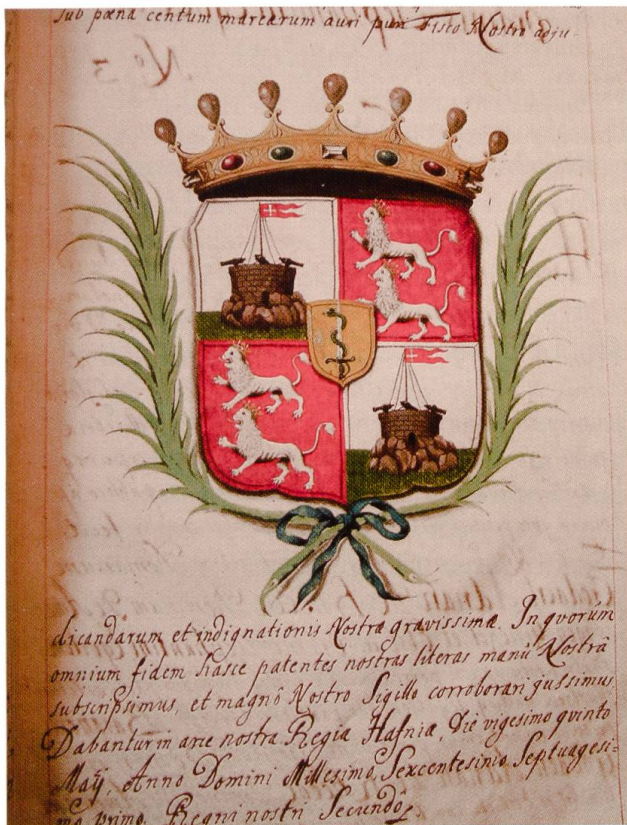 sub pœna centum marcarum auri puri Fisco Nostro adju-
No 3
dicandarum et indignationis Nostræ gravissimæ. In qvorum
omnium fidem hasce patentes nostras literas manû Nostrâ
subscripsimus, et magnô Nostro Sigillo corroborari jussimus,
Dabantur in arce nostra Regia Hafniæ, Die vigesimo qvinto
Maÿ, Anno Domini Millesimo, Sexcentesimo Septuagesi-
mo primo. Regni nostri Secundô,